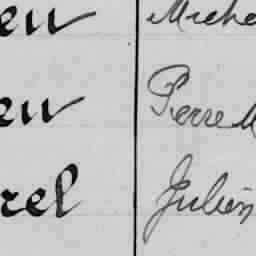 en Miche
en Pierre M
rel Julien